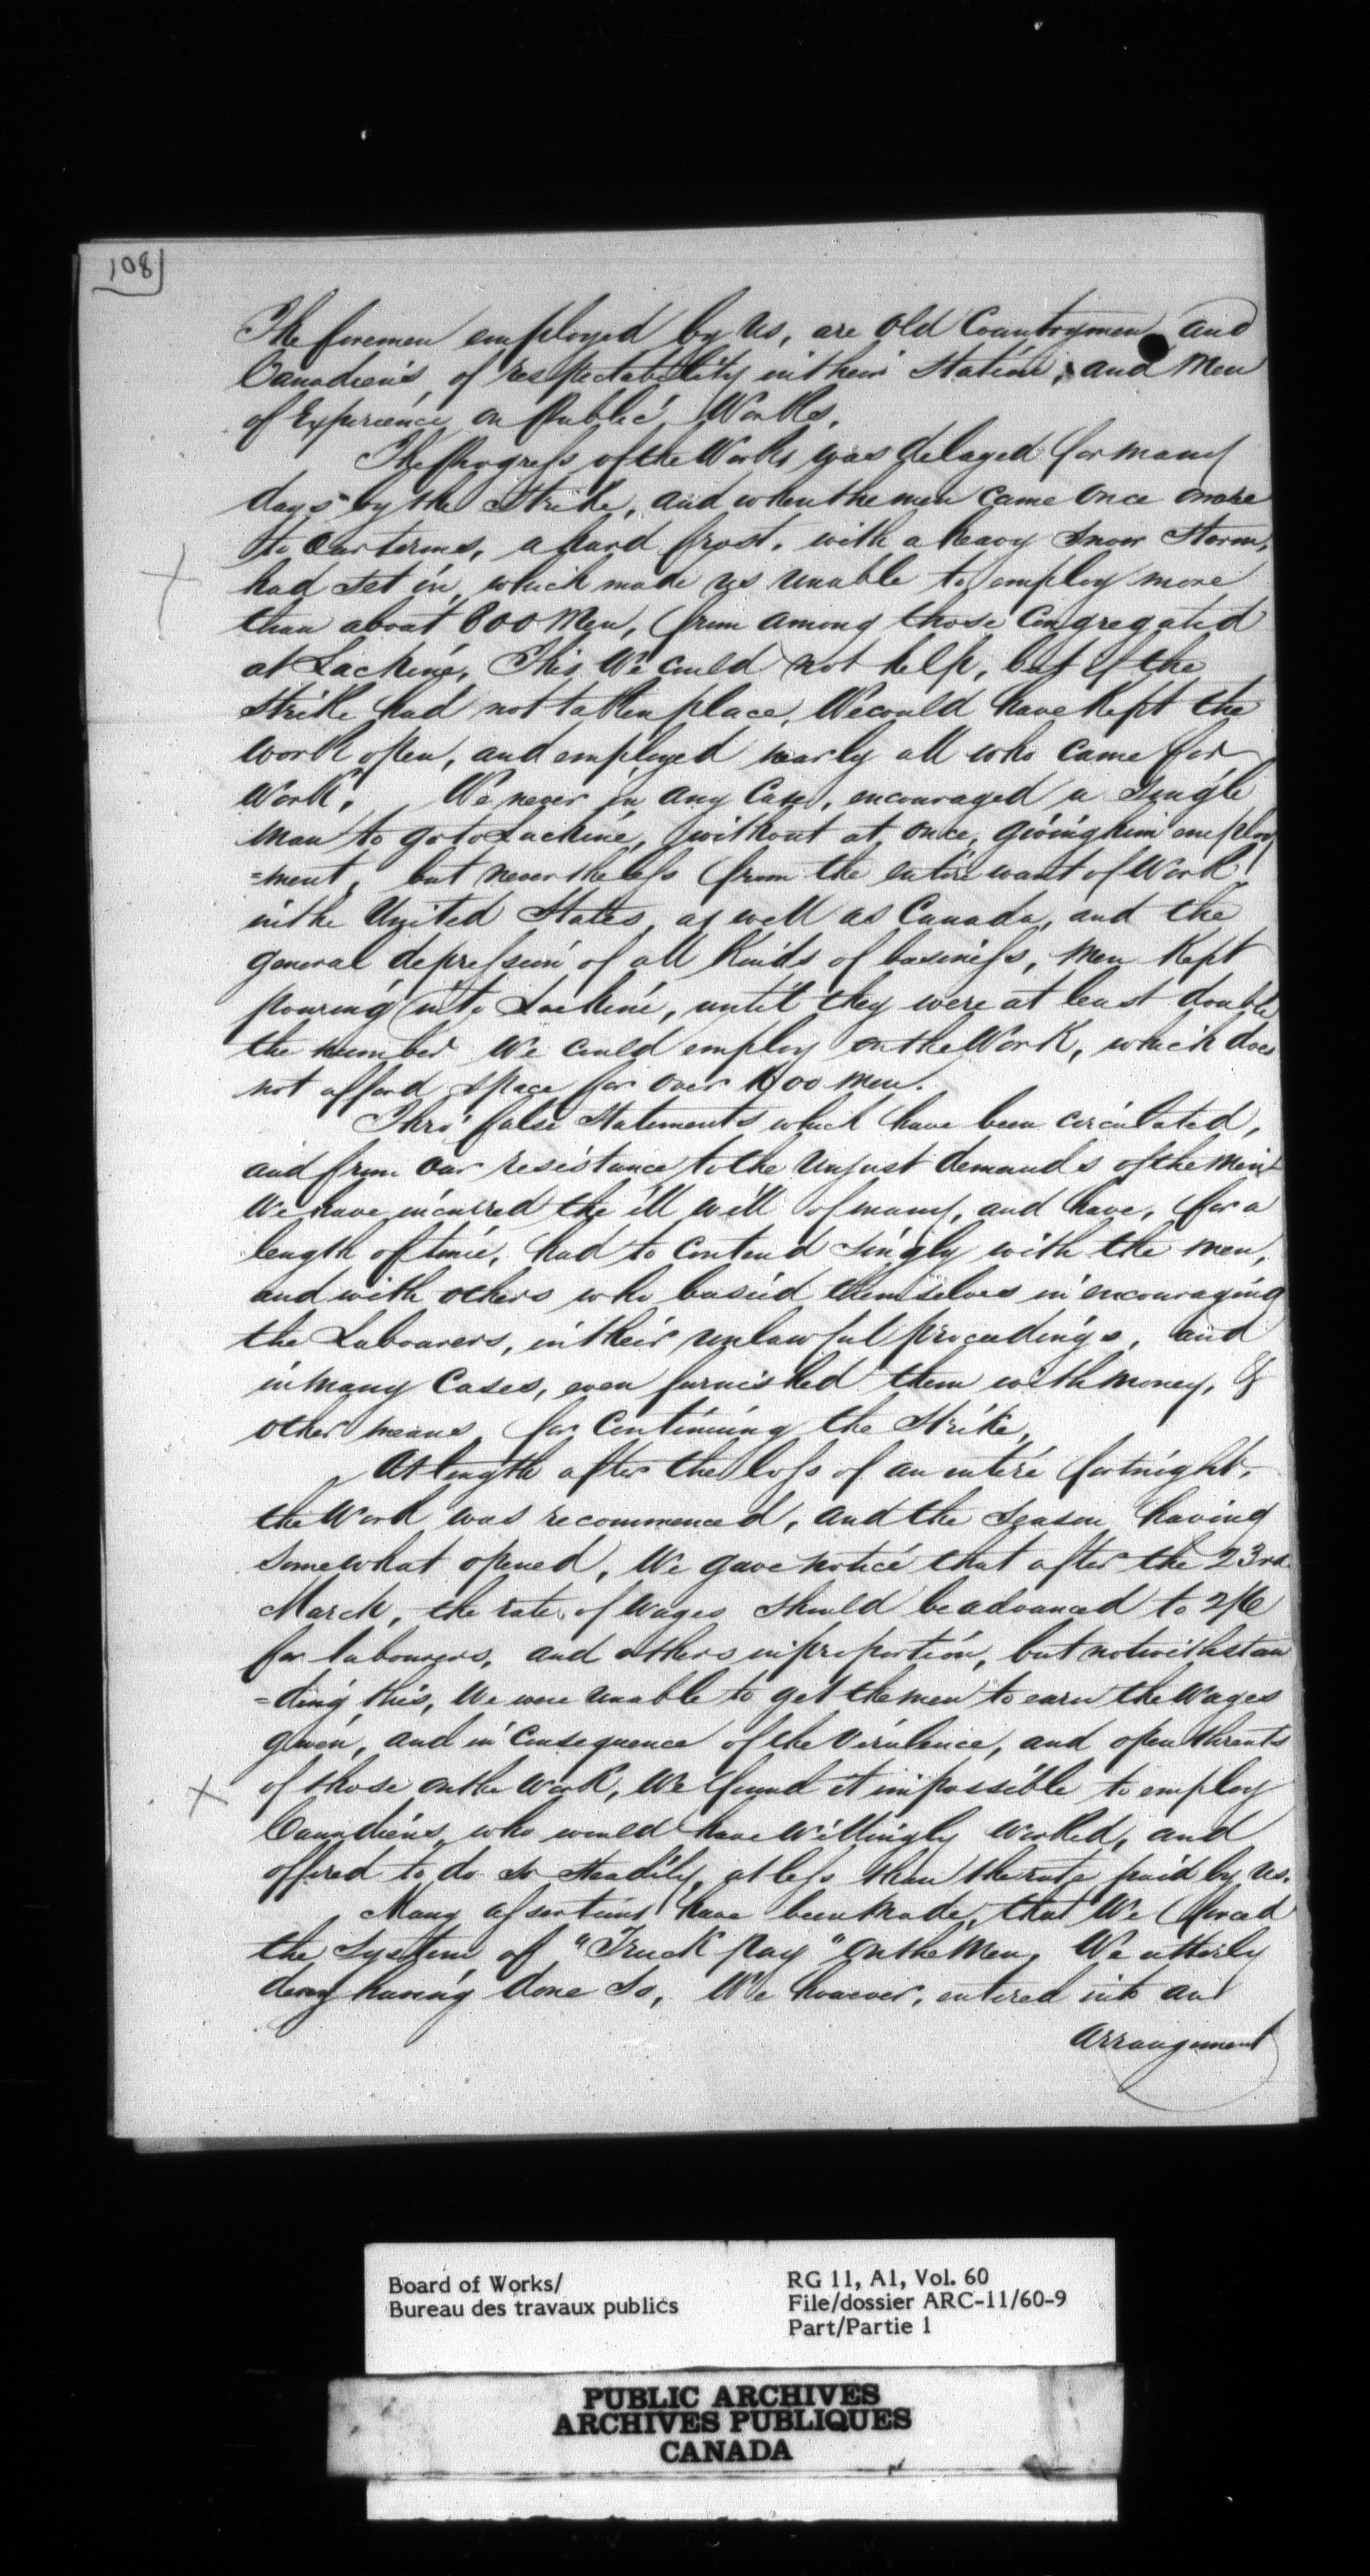 108
The foremen employed by us, are Old Countrymen and
Canadiens, of respectability in their Station, and Men
of Experience on Public Works.
The Progress of the Works was delayed for many
days by the Strike, and when the men came once more
to our terms, a hard frost, with a heavy Snow Storm,
had set in, which made us unable to employ more
than about 800 Men, from among those Congregated
at Lachine, This We could not help, but if the
Strike had not taken place, We could have kept the
work open, and employed nearly all who came for
Work. We never in any Case, encouraged a Single
man to go to Lachine, without at once, giving him employ
=ment, but nevertheless from the entire want of Work
in the United States, as well as Canada, and the
general depression of all Kinds of business, Men Kept
pouring into Lachine, until they were at least double
the number We could employ on the Work, which does
not afford space for over men.
Thro' false Statements which have been circulated,
and from our resistance to the unjust demands of the Men
We have incurred the ill will of many, and have, for a
length of time, had to contend singly with the men,
and with others who busied themselves in encouraging
the Labourers, in their unlawful proceedings, and
in many Cases, even furnished them with money, &
other means for continuing the Strike,
At length after the loss of an entire fortnight,
the Work was recommenced, and the Season having
somewhat opened, We gave notice that after the 23rd
March, the rate of Wages should be advanced to 2/6
for labourers, and others in proportion, but notwithstan
=ding this, We were unable to get the men to earn the Wages
given, and in Consequence of the Virulence, and open threats
of those on the Work, We found it impossible to employ
Canadiens, who would have willingly worked, and
offered to do so steadily, at less than the rate paid by us.
Many assertions have been made, that We forced
the System of "Truck pay" on the Men, We utterly
deny having done So, We however, entered into an
Arrangement
Board of Works/
Bureau des travaux publics
RG 11, A1, Vol. 60
File/dossier ARC-11/60-9
Part/Partie 1
PUBLIC ARCHIVES
ARCHIVES PUBLIQUES
CANADA